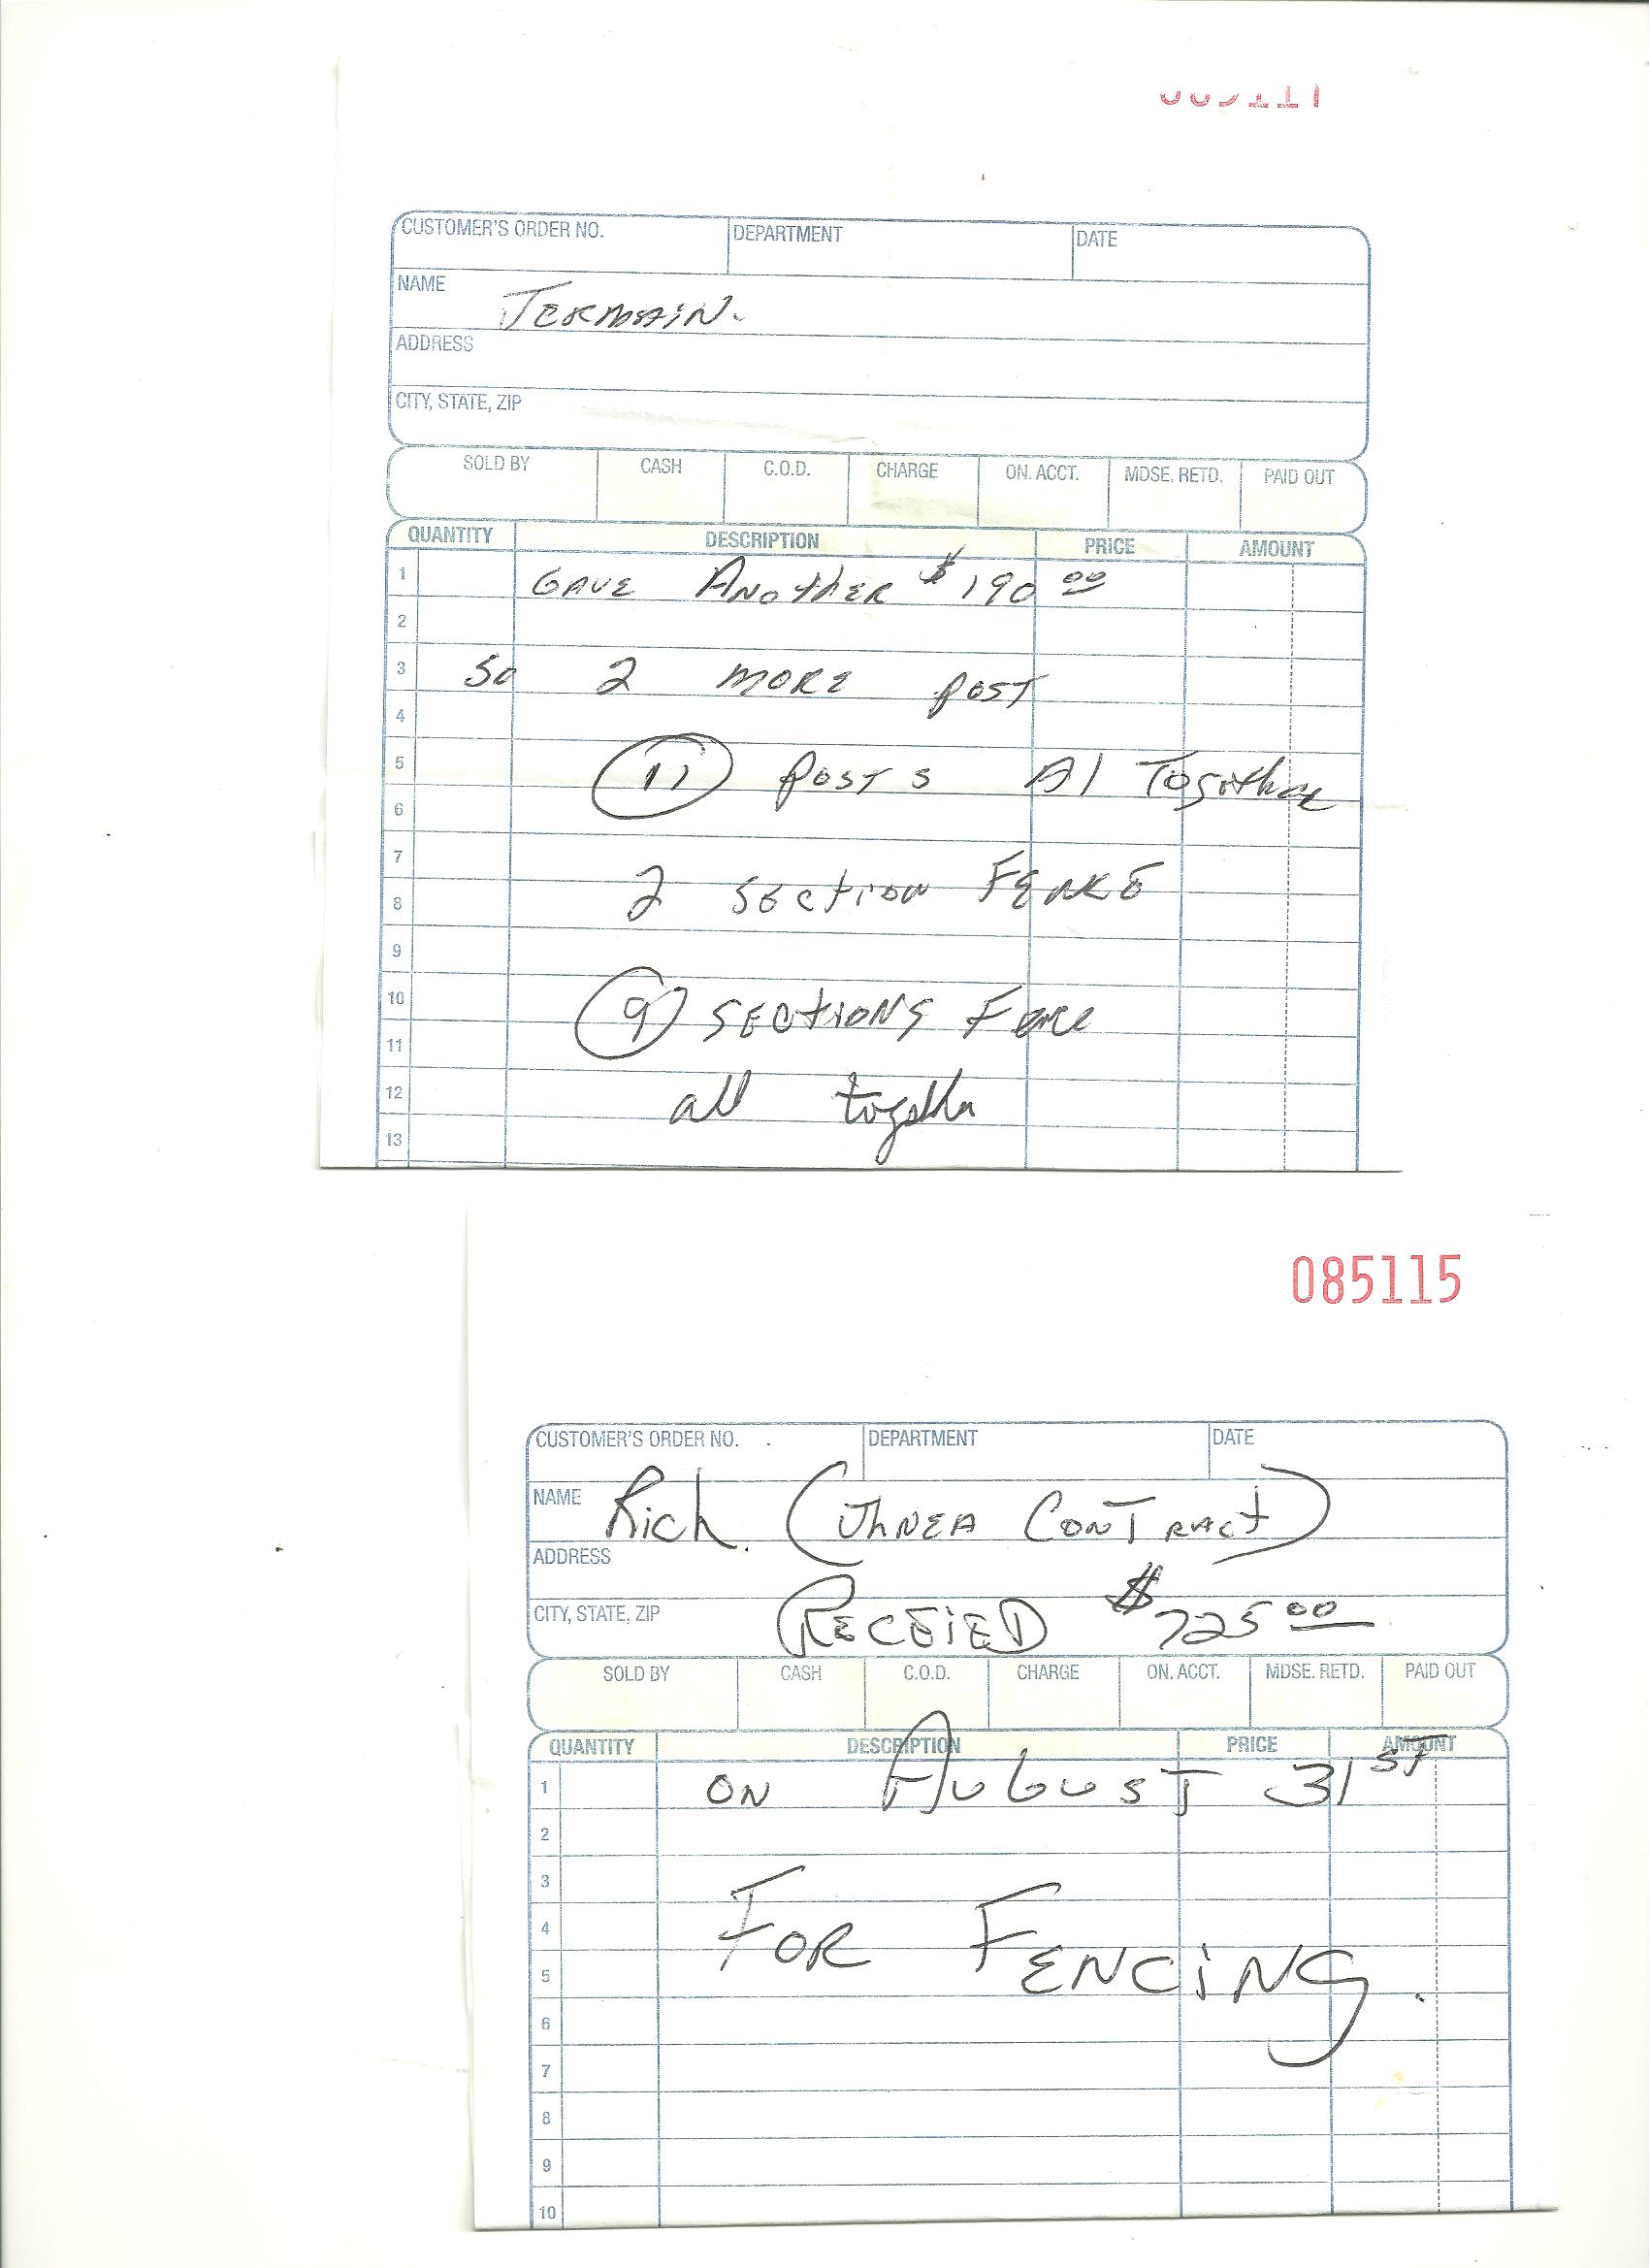 CUSTOMER'S ORDER NO. DEPARTMENT DATE
NAME JERMAIN.
ADDRESS
CITY, STATE, ZIP
SOLD BY CASH C.O.D. CHARGE ON. ACCT. MDSE. RETD. PAID OUT
QUANTITY DESCRIPTION PRICE AMOUNT
1 GAVE ANOTHER $190 00
2
3 SO 2 MORE POST
4
5 11 POSTS Al TOGETHER
6
7
8 2 SECTION FENCE
9
10 9 SECTIONS FENCE
11
12 all together
13
085115
CUSTOMER'S ORDER NO. DEPARTMENT DATE
NAME Rich. ( CONTRACT)
ADDRESS
CITY, STATE, ZIP RECEIED $725 00
SOLD BY CASH C.O.D. CHARGE ON. ACCT. MDSE. RETD. PAID OUT
QUANTITY DESCRIPTION PRICE AMOUNT
1 ON AUGUST 31ST
2
3
4 FOR FENCING.
5
6
7
8
9
10